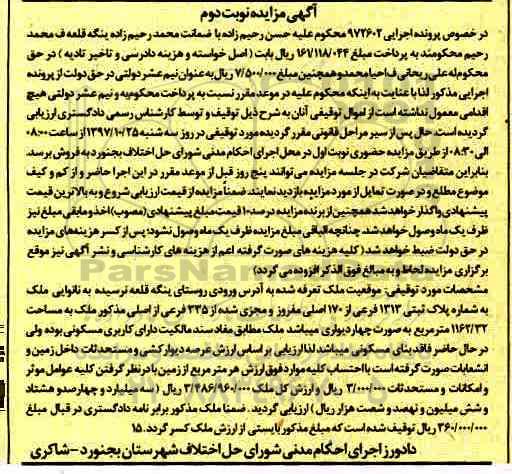 آگهی مزایده نوبت دوم
در خصوص پرونده اجرایی ۹۷۲۶۰۲ محکوم علیه حسن رحیم زاده با ضمانت محمد رحیم زاده ینگه قلعه ف محمد
رحیم محکومند به پرداخت مبلغ ۱۶۱/۱۱۸/۰۴۴ ریال بابت ( اصل خواسته و هزینه دادرسی و تاخیر تادیه ) در حق
محکوم له علی ریحانی ف احیا محمد و همچنین مبلغ ۷/۵۰۰/۰۰۰ ریال به عنوان نیم عشر دولتی در حق دولت از پرونده
اجرایی مذکور لذا با عنایت به اینکه محکوم علیه در موعد مقرر نسبت به پرداخت محکوم به و نیم عشر دولتی هیچ
اقدامی معمول نداشته است از اموال توقیفی آنان به شرح ذیل توقیف و توسط کارشناس رسمی دادگستری ارزیابی
گردیده است. حال پس از سیر مراحل قانونی مقرر گردیده مورد توقیفی در روز سه شنبه ۱۳۹۷/۱۰/۲۵ از ساعت ۰۸:۰۰
الی ۰۸:۳۰ از طریق مزایده حضوری نوبت اول در محل اجرای احکام مدنی شورای حل اختلاف بجنورد به فروش برسد.
بنابراین متقاضیان شرکت در جلسه مزایده می توانند پنج روز قبل از موعد مقرر در این اجرا حاضر و از کم و کیف
موضوع مطلع و در صورت تمایل از مورد مزایده بازدید نمایند. ضمناً مزایده از قیمت ارزیابی شروع و به بالاترین قیمت
پیشنهادی واگذار خواهد شد همچنین از برنده مزایده در صد ۱۰ قیمت مبلغ پیشنهادی (مصوب) اخذ و مابقی مبلغ نیز
ظرف یک ماه وصول خواهد شد. چنانچه الباقی مبلغ مزایده ظرف یک ماه وصول نشود؛ پس از کسر هزینه های مزایده
در حق دولت ضبط خواهد شد ( کلیه هزینه های صورت گرفته اعم از هزینه های کارشناسی و نشر آگهی نیز موقع
برگزاری مزایده لحاظ و به مبالغ فوق الذکر افزوده می گردد)
مشخصات مورد توقیفی: موقعیت ملک تعرفه شده به آدرس ورودی روستای ینگه قلعه نرسیده به نانوایی ملک
به شماره پلاک ثبتی ۱۳۱۳ فرعی از ۱۷۰ اصلی مفروز و مجزی شده از ۲۳۵ فرعی از اصلی مذکور ملک به مساحت
۱۱۶۲/۳۲ مترمربع به صورت چهار دیواری میباشد ملک مطابق مفاد سند مالکیت دارای کاربری مسکونی بوده ولی
در حال حاضر فاقد بنای مسکونی میباشد لذا ارزیابی بر اساس ارزش عرصه دیوار کشی و مستحدثات داخل زمین و
انشعابات صورت گرفته است با احتساب کلیه موارد فوق ارزش هر متر مربع از زمین با در نظر گرفتن کلیه عوامل موثر
و امکانات و مستحدثات ۳/۰۰۰/۰۰۰ ریال و ارزش کل ملک ۳/۴۸۶/۹۶۰/۰۰۰ ریال ( سه میلیارد و چهارصد و هشتاد
و شش میلیون و نهصد و شصت هزار ریال ) ارزیابی گردید. ضمنا ملک مذکور برابر نامه دادگستری در قبال مبلغ
۳۶۰/۰۰۰/۰۰۰ ریال توقیف شده است که مبلغ مذکور بایستی از ارزش ملک کسر گردد. ۱۵
دادورز اجرای احکام مدنی شورای حل اختلاف شهرستان بجنورد - شاکری